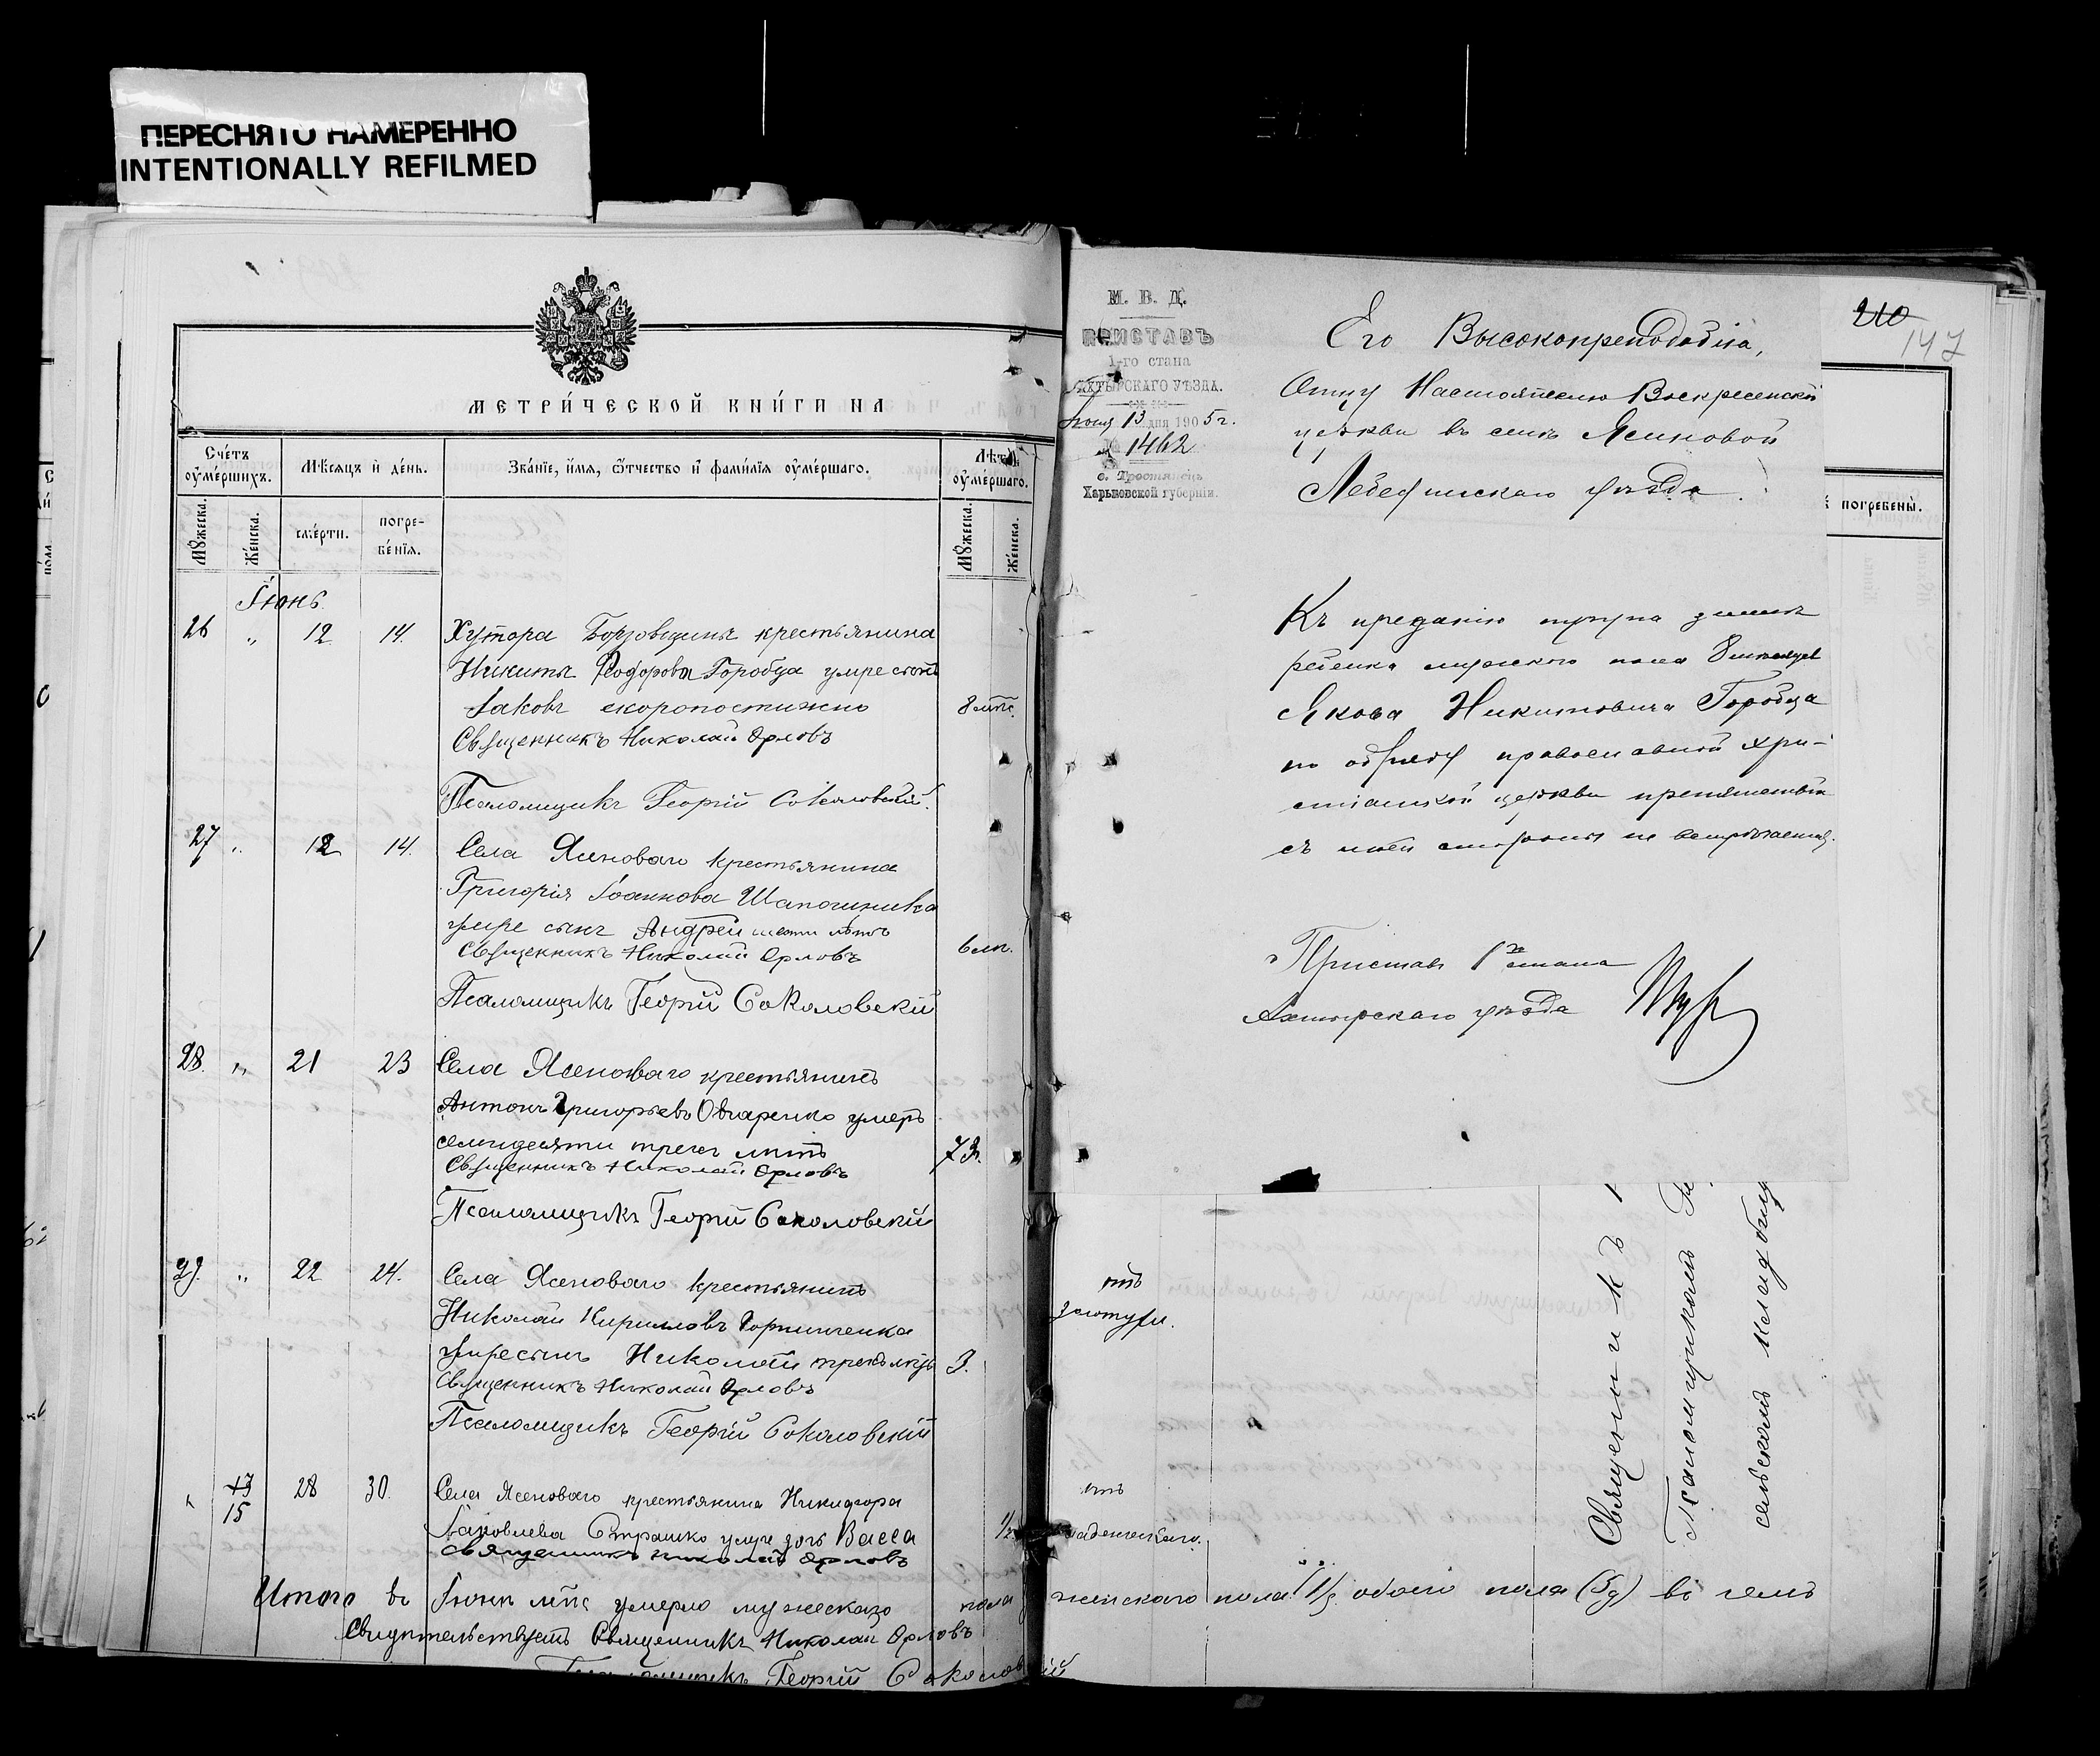 ПЕРЕСНЯТО НАМЕРЕННО
INTENTIONALLY REFILMED
МЕТРИ́ЧЕСКОЙ КНИ́ГИ НА
Сче́тъ ᲂу҆ме́ршихъ.
Мѣ́сяцъ и҆ де́нь.
Зва́нїе, и҆́мя, ѻ҆́тчество и҆ фами́лїя ᲂу҆ме́ршаго.
Лѣ́та ᲂу҆ме́ршаго.
Мꙋ́жеска.
Же́нска.
сме́рти.
погре-
бе́нїя.
Мꙋ́жеска.
Же́нска.
Іюнь
26 " 12 14. Хутора Борзовщины крестьянина
Никиты Ѳеодорова Горобца умре сынъ
Іаковъ скоропостижно 8 мѣс.
Священникъ Николай Орловъ
Псаломщикъ Георгій Соколовскій.
27 " 12 14. Села Ясеноваго крестьянина
Григорія Іоаннова Шапошника
умре сынъ Андрей шести лѣтъ
6 лѣт.
Священникъ Николай Орловъ
Псаломщикъ Георгій Соколовскій
28. " 21 23 Села Ясеноваго крестьянинъ
Антонъ Григорьевъ Овчаренко умеръ
семидесяти трехъ лѣтъ 73.
Священникъ Николай Орловъ
Псаломщикъ Георгій Соколовскій
29. " 22 24. Села Ясеноваго крестьянинъ
Николай Кирилловъ
умре сынъ Николай 3.
Священникъ Николай Орловъ
Псаломщикъ Георгій Соколовскій
" 13 15 28 30. Села Ясеноваго крестьянина Никифора
Іаковлева Страшко умре дочь Васса 1/2
Священникъ Николай Орловъ
Итого въ Іюнѣ мѣс умерло мужескаго пола
Свидѣтельствуетъ Священникъ Николай Орловъ
Псаломщикъ Георгій Соколовскій
М. В. Д.
ПРИСТАВЪ
1-го стана
АХТЫРСКАГО УѢЗДА.
Іюня 13 дня 1905 г.
№ 1462
с. Тростянецъ
Харьковской губерніи.
Его Высокопреподобію,
Отцу Настоятелю Воскресенской
церкви въ селѣ Ясеновой
Лебединскаго уѣзда.
210
147
погребены̀.
Къ преданію трупа землѣ
ребенка мужского пола 8 мѣсяцев
Якова Никитовича Горобца
по обряду православной хри-
стіанской церкви препятствій
съ моей стороны не встрѣчается.
Приставъ 1го стана
Ахтырскаго уѣзда
отъ
золотухи.
отъ
младенческаго.
женскаго пола обоего пола въ чемъ
Священникъ
Псаломщикомъ
сельскомъ кладбищѣ